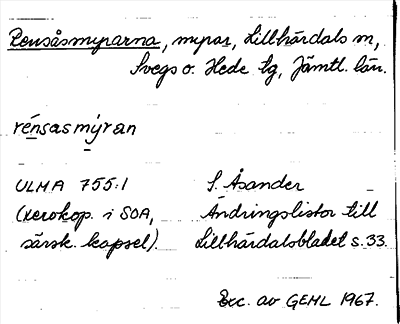 Rensåsmyrarna, myrar, Lillhärdals sn,
Svegs o. Hede tg, Jämtl. län.
rénsasmýran
ULMA 755:1 S. Åsander
(xerokop. i SOA, Ändringslistor till
särsk. kapsel). Lillhärdalsbladet s. 33.
Exc. av GEHL 1967.